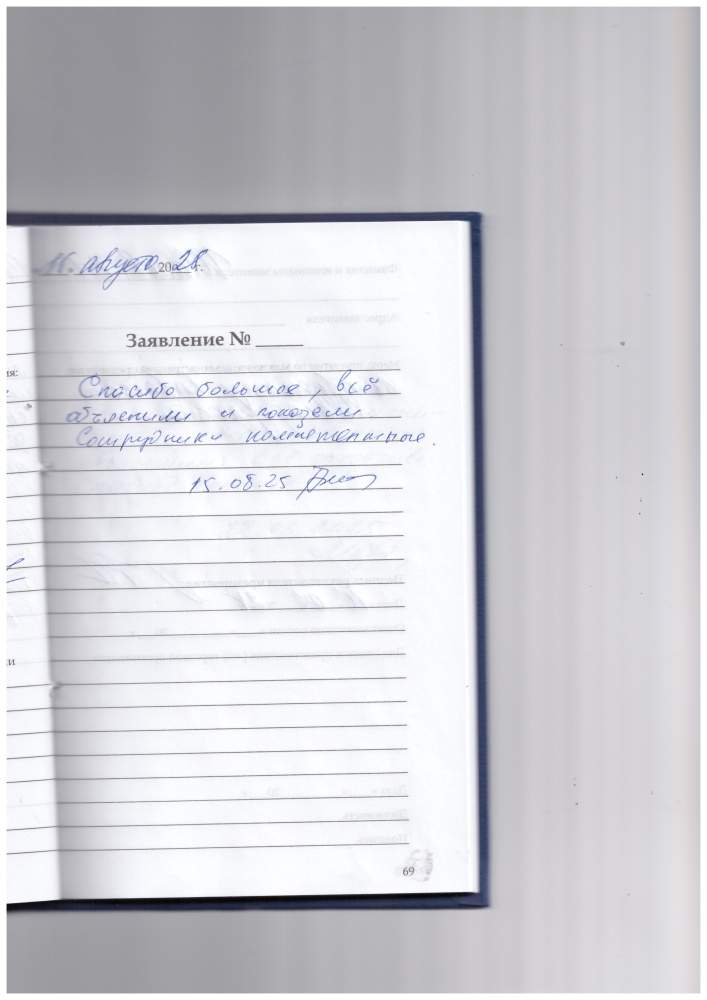 16. августа 2028 г.
Заявление № _____
Спасибо большое, всё
объяснили и показали
Сотрудники компетентные.
15.08.25
ия:
ки
69